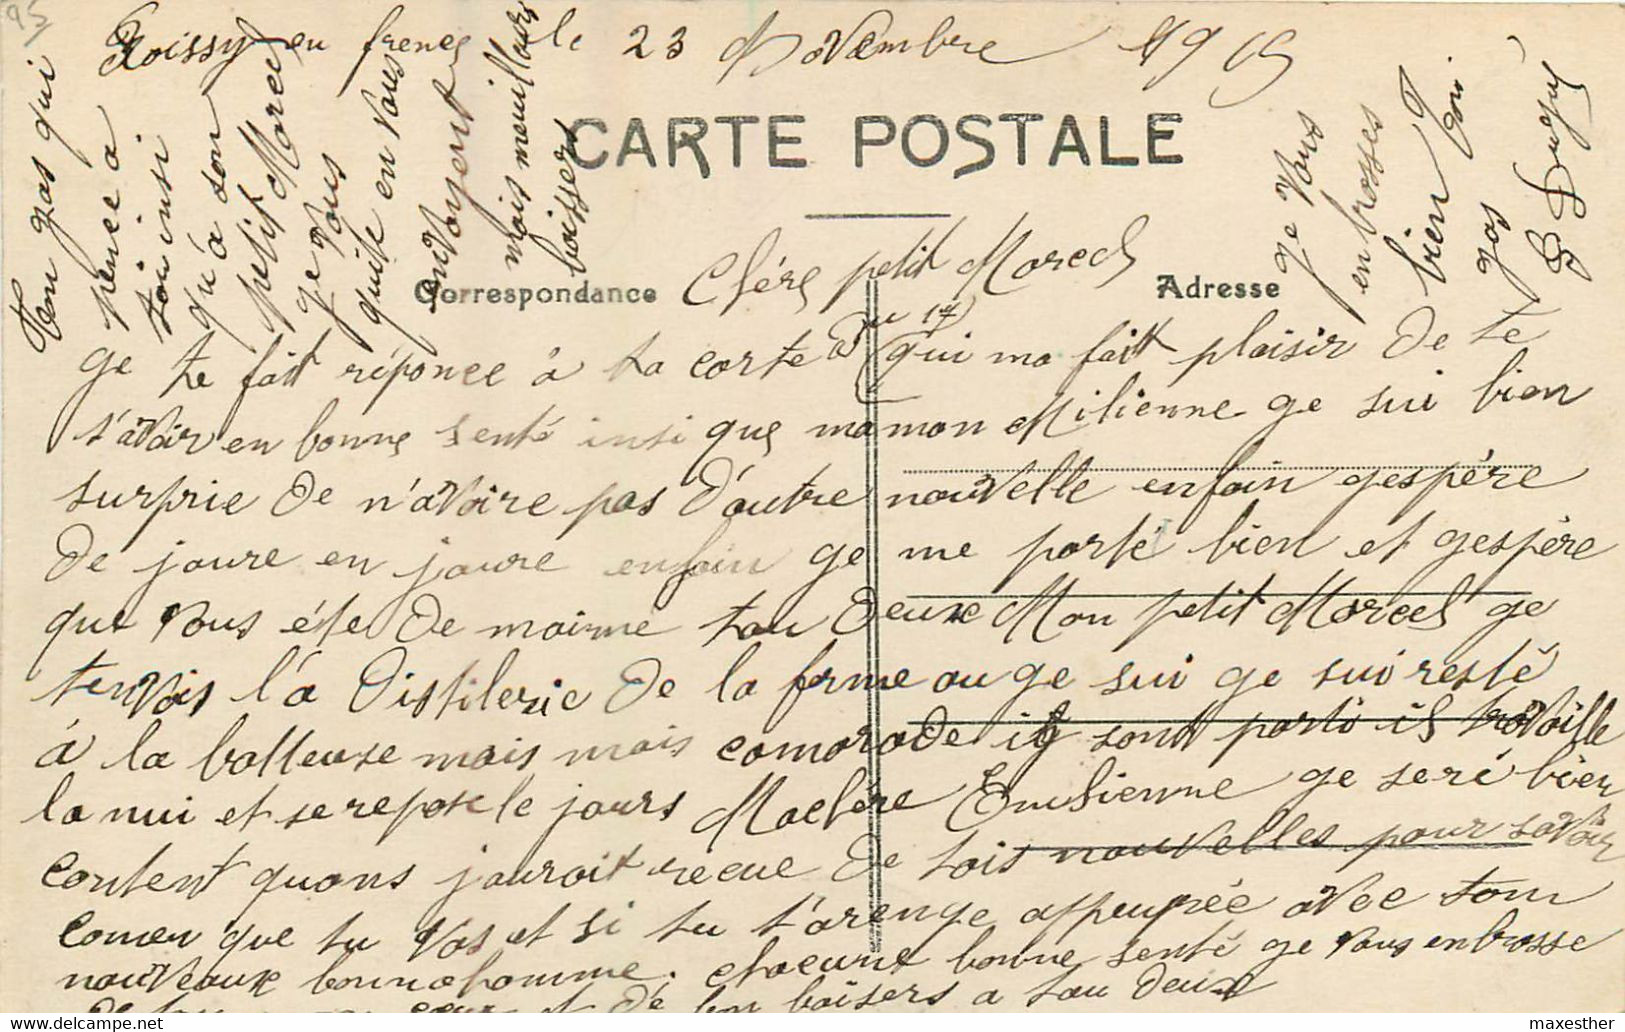 95
Roissy en frence le 23 Novembre 1915
CARTE POSTALE
Correspondance
Adresse
Chére petit Marcel
ge te fait réponce à ta carte du 17 qui ma fait plaisir de te
s'avoir en bonne senté insi que maman Milienne ge sui bien
surprie de n'avoire pas d'autre nouvelle enfain gespére
de joure en joure enfain ge me porte bien et gespère
que vous éte de maime tou deux Mon petit Marcel ge
tenvois l'a Distilerie de la ferme ou ge sui ge sui resté
à la batteuse mais mais camarade il sont parti il travaille
la nui et se repose le jours Machére Emilienne ge seré bien
content quans jauroit recue de tois nouvelles pour savoir
comen que tu vas et si tu t'arenge appeuprée avec tom
nouveaux bonnohomme. chacune bonne senté ge vous enbrasse
de tou mon cœur et de bon baisers a tou deux
Ten gas qui
pence a
toi insi
qu'a son
petit Marcel
ge vous
quite en vous
envoyent
mais meuillours
baisser
ge vous
enbrosses
bien
ton
gas